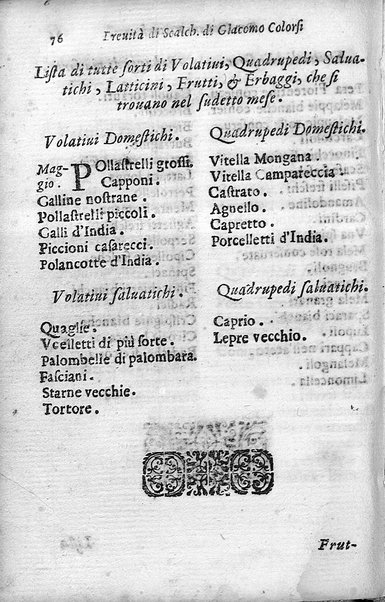 76 Breuità di Scalch. di Giacomo Colorsi
Lista di tutte sorti di Volatiui, Quadrupedi, Salua-
tichi, Latticini, Frutti, & Erbaggi, che si
trouano nel sudetto mese.
Volatiui Domestichi.
Mag-
gio.
Pollastrelli grossi.
Capponi.
Galline nostrane.
Pollastrelli piccoli.
Galli d'India.
Piccioni casarecci.
Polancotte d'India.
Volatiui saluatichi.
Quaglie.
Vcelletti di più sorte.
Palombelle di palombara.
Fasciani.
Starne vecchie.
Tortore.
Quadrupedi Domestichi.
Vitella Mongana.
Vitella Campareccia
Castrato.
Agnello.
Capretto.
Porcelletti d'India.
Quadrupedi saluatichi.
Caprio.
Lepre vecchio.
Frut-